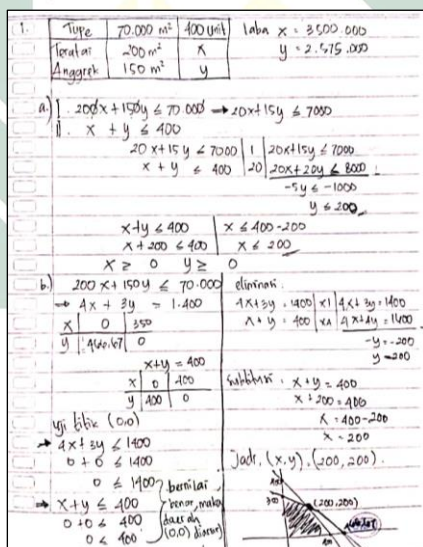 1.
Type 70.000 m² 400 unit
Teratai 200 m² x
Anggrek 150 m² y
laba x = 3500.000
y = 2.575.000
a.) I. 200x + 150y ≤ 70.000 → 20x + 15y ≤ 7000
II. x + y ≤ 400
20x + 15y ≤ 7000 | 1 | 20x + 15y ≤ 7000
x + y ≤ 400 | 20 | 20x + 20y ≤ 8000
-5y ≤ -1000
y ≤ 200
x + y ≤ 400 | x ≤ 400 - 200
x + 200 ≤ 400 | x ≤ 200
x ≥ 0 y ≥ 0
b.) 200x + 150y ≤ 70.000
→ 4x + 3y = 1.400
x 0 350
y 466,67 0
x + y = 400
x 0 400
y 400 0
uji titik (0,0)
→ 4x + 3y ≤ 1400
0 + 0 ≤ 1400
0 ≤ 1400
→ x + y ≤ 400
0 + 0 ≤ 400
0 ≤ 400
bernilai
benar, maka
daerah
(0,0) diarsir
eliminasi.
4x + 3y = 1400 | x1 | 4x + 3y = 1400
x + y = 400 | x4 | 4x + 4y = 1600
-y = -200
y = 200
substitusi : x + y = 400
x + 200 = 400
x = 400 - 200
x = 200
Jadi, (x,y) . (200, 200).
(200,200)